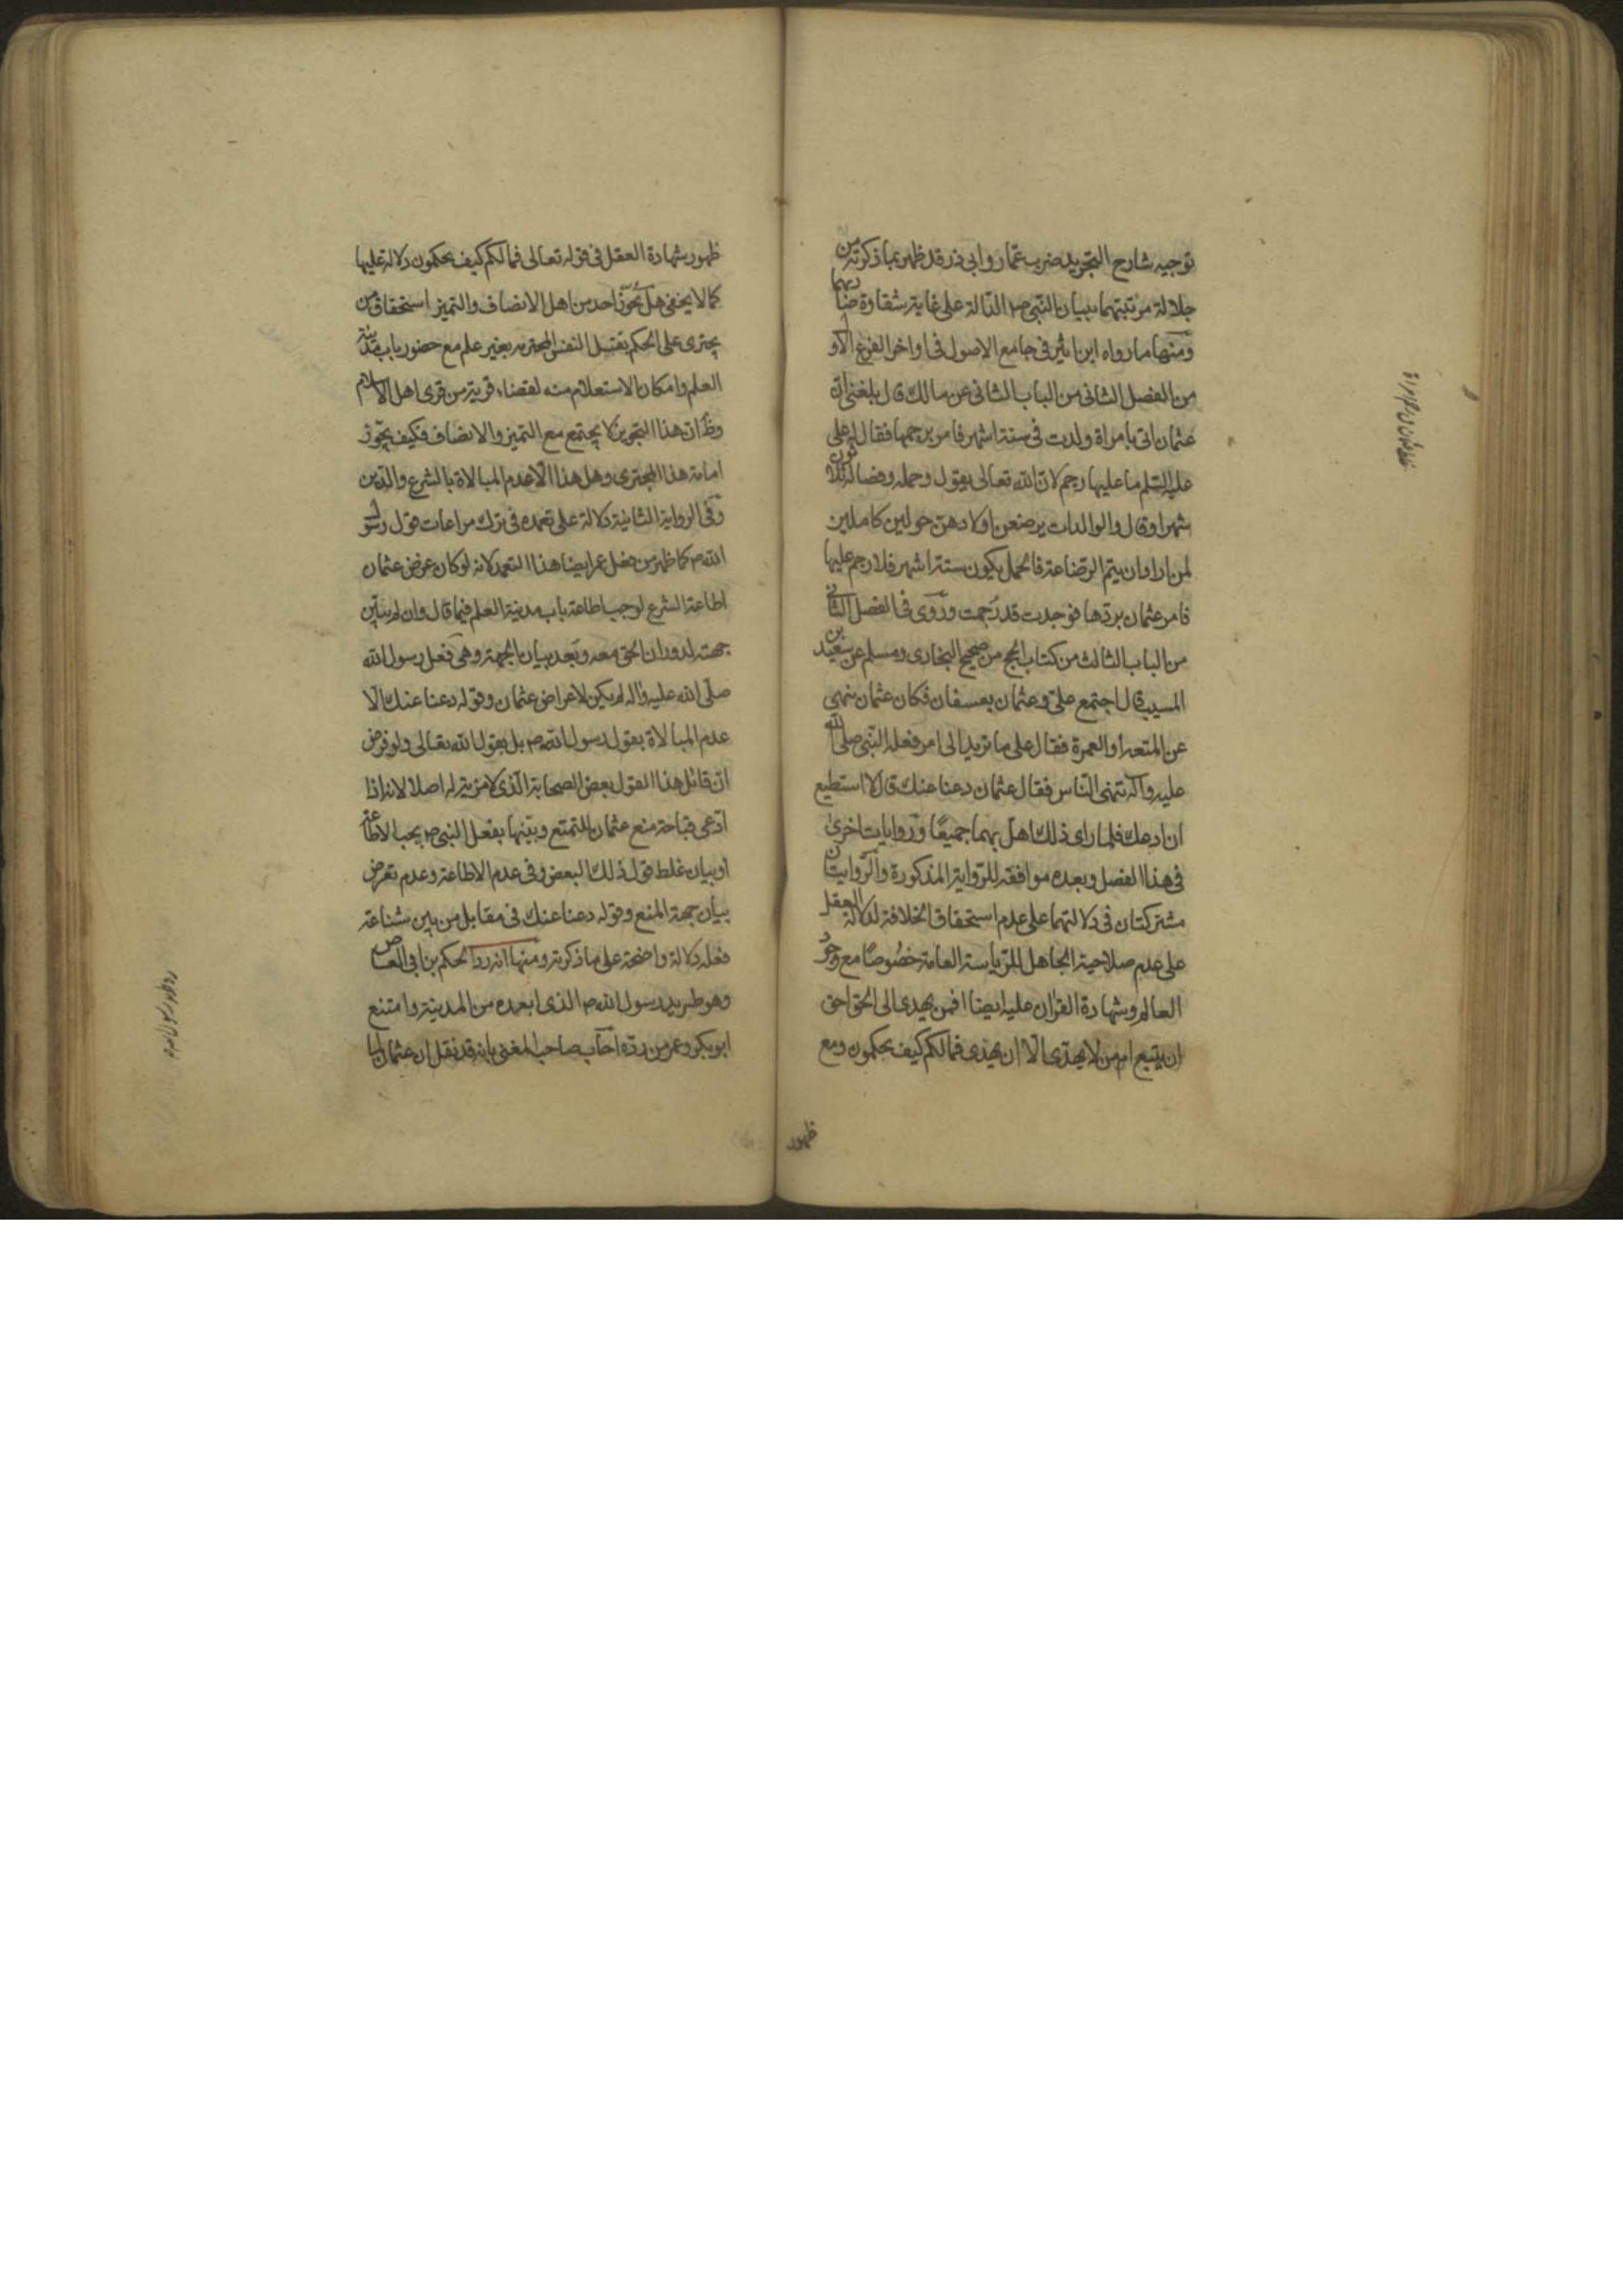 توجيه شارح التجريد ضرب عمار وابي ذر قد ظهر بما ذكرته من
جلالة مرتبتهما ببيان النبي ص الدالة على غاية شقاوة ضاربهما
ومنها ما رواه ابن اثير في جامع الاصول في اواخر الفرع الاول
من الفصل الثاني من الباب الثاني عن مالك قال بلغني ان
عثمان اتى بامراة ولدت في ستة اشهر فامر برجمها فقال له علي
عليه السلم ما عليها رجم لان الله تعالى يقول وحمله وفصاله ثلثون
شهرا وقال والوالدات يرضعن اولادهن حولين كاملين
لمن اراد ان يتم الرضاعة فالحمل يكون ستة اشهر فلا رجم عليها
فامر عثمان بردها فوجدت قد رجمت وروى في الفصل الثاني
من الباب الثالث من كتاب الحج من صحيح البخاري ومسلم عن سعيد بن
المسيب قال اجتمع علي وعثمان بعسفان فكان عثمان ينهى
عن المتعة او العمرة فقال علي ما تريد الى امر فعله النبي صلى الله
عليه وآله تنهى الناس فقال عثمان دعنا عنك قال لا استطيع
ان ادعك فلما راى ذلك اهل بهما جميعا وروايات اخرى
في هذا الفصل وبعده موافقة للرواية المذكورة والروايتان
مشتركتان في دلالتهما على عدم استحقاق الخلافة لدلالة العقل
على عدم صلاحية الجاهل للرياسة العامة خصوصا مع وجود
العالم وشهادة القران عليه ايضا افمن يهدى الى الحق احق
ان يتبع امن لا يهدى الا ان يهدى فمالكم كيف تحكمون ومع
ظهور
ظهور شهادة العقل في قوله تعالى فمالكم كيف تحكمون دلالة عليها
كما لا يخفى هل يجوز احد من اهل الانصاف والتميز استحقاق من
يجترى على الحكم بقتل النفس المحترمة بغير علم مع حضور باب مدينة
العلم وامكان الاستعلام منه لقضاء قرية من قرى اهل الاسلام
وظ ان هذا التجويز لا يجتمع مع التميز والانصاف فكيف يجوز
امامة هذا المجترى وهل هذا الا عدم المبالاة بالشرع والدين
وفي الرواية الثانية دلالة على تعمده في ترك مراعات قول رسول
الله ص كما ظهر من فعل عمر ايضا هذا التعمد لانه لو كان غرض عثمان
اطاعة الشرع لوجب اطاعة باب مدينة العلم فيما قال وان لم يبين
جهته لدوران الحق معه وبعد بيان الجهة وهي فعل رسول الله
صلى الله عليه واله لم يكن لاعراض عثمان وقوله دعنا عنك الا
عدم المبالاة بقول رسول الله ص بل بقول الله تعالى ولو فرض
ان قائل هذا القول بعض الصحابة الذي لا مزية له اصلا لانه اذا
ادعى قباحة منع عثمان للتمتع وبينها بفعل النبي ص يجب الاطاعة
او بيان غلط قول ذلك البعض وفي عدم الاطاعة وعدم تعرض
بيان جهة المنع وقوله دعنا عنك في مقابل من بين شناعة
فعله دلالة واضحة على ما ذكرته ومنها انه رد الحكم بن ابي العاص
وهو طريد رسول الله ص الذي ابعده من المدينة وامتنع
ابو بكر وعمر من رده اجاب صاحب المغني بانه قد نقل ان عثمان لما